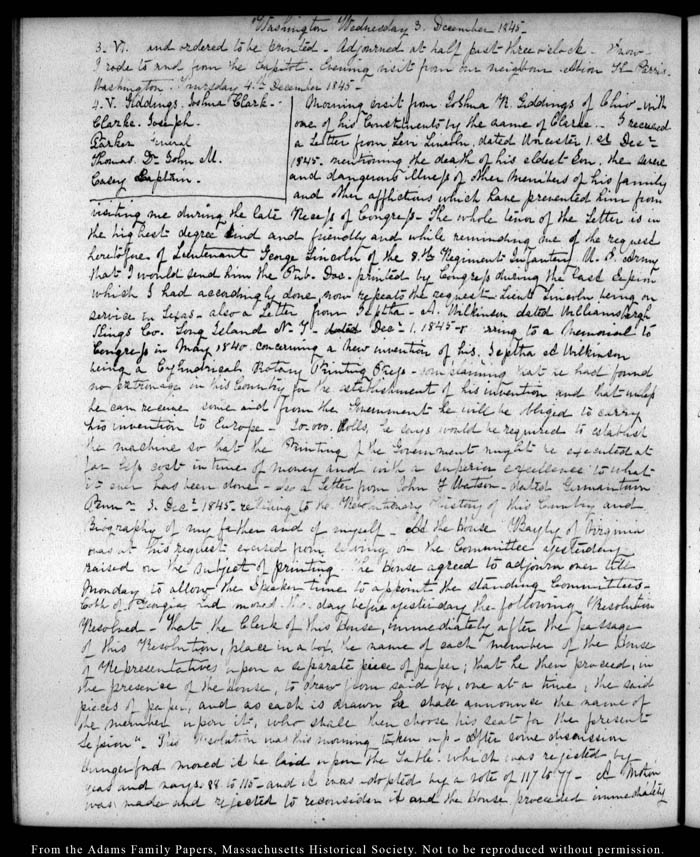 Washington Wednesday 3. December 1845-
3. VI. and ordered to be printed - Adjourned at half past three o'clock - Snow
I rode to and from the Capitol. Evening visit from our neighbour
Washington. Thursday 4th December 1845-
4. V. Giddings. Joshua Clark.-
Clarke. Joseph.
Parker General
Thomas. Dr. John M.
Casey Captain.
Morning visit from Joshua R. Giddings of Ohio with
one of his Constituents by the name of Clarke. I received
a Letter from Levi Lincoln, dated Worcester 1. Decr
1845. mentioning the death of his eldest Son, the severe
and dangerous illness of other Members of his family
and other afflictions which have prevented him from
visiting me during the late Recess of Congress- The whole tenor of the Letter is in
the highest degree kind and friendly and while reminding me of the request
heretofore of Lieutenant George Lincoln of the 8.th Regiment Infantry U. S. Army
that I would send him the Pub. Doc. printed by Congress during the last Session
which I had accordingly done, now repeats the request Lieut Lincoln being on
service in Texas - also a Letter from Jeptha A. Wilkinson dated Williamsburgh
Kings Co. Long Island N. Y. dated Decr 1. 1845 - to a Memorial to
Congress in May 1840. concerning a new invention of his, Jeptha A Wilkinson
being a Cylindrical Rotary Printing Press - complaining that he had found
no patronage in his Country for the establishment of his invention and that unless
he can receive some aid from the Government he will be obliged to carry
his invention to Europe - Dolls, he says would be required to establish
the machine so that the Printing of the Government might be executed at
far less cost in time of money and with a superior excellence to what
it ever has been done - also a Letter from John F Watson - dated Germantown
Penna 3. Decr 1845- relating to the Revolutionary History of this Country and
Biography of my father and of myself - At the House Bayly of Virginia
was at his request excused from serving on the Committee yesterday
raised on the subject of printing. The House agreed to adjourn over till
Monday to allow the Speaker time to appoint the standing Committees-
Cobb of Georgia had moved the day before yesterday the following Resolution
Resolved - That the Clerk of this House, immediately after the passage
of this Resolution, place in a box, the name of each member of the House
of Representatives upon a separate piece of paper; that he then proceed, in
the presence of the House, to draw from said box, one at a time, the said
pieces of paper, and as each is drawn he shall announce the name of
the member upon it, who shall then choose his seat for the present
Session". This Resolution was this morning taken up - After some discussion
Hungerford moved it be laid upon the Table. which was rejected by
yeas and nays. 88 to 115- and it was adopted by a vote of 117 to 77- A Motion
was made and rejected to reconsider it and the House proceeded immediately
From the Adams Family Papers, Massachusetts Historical Society. Not to be reproduced without permission.